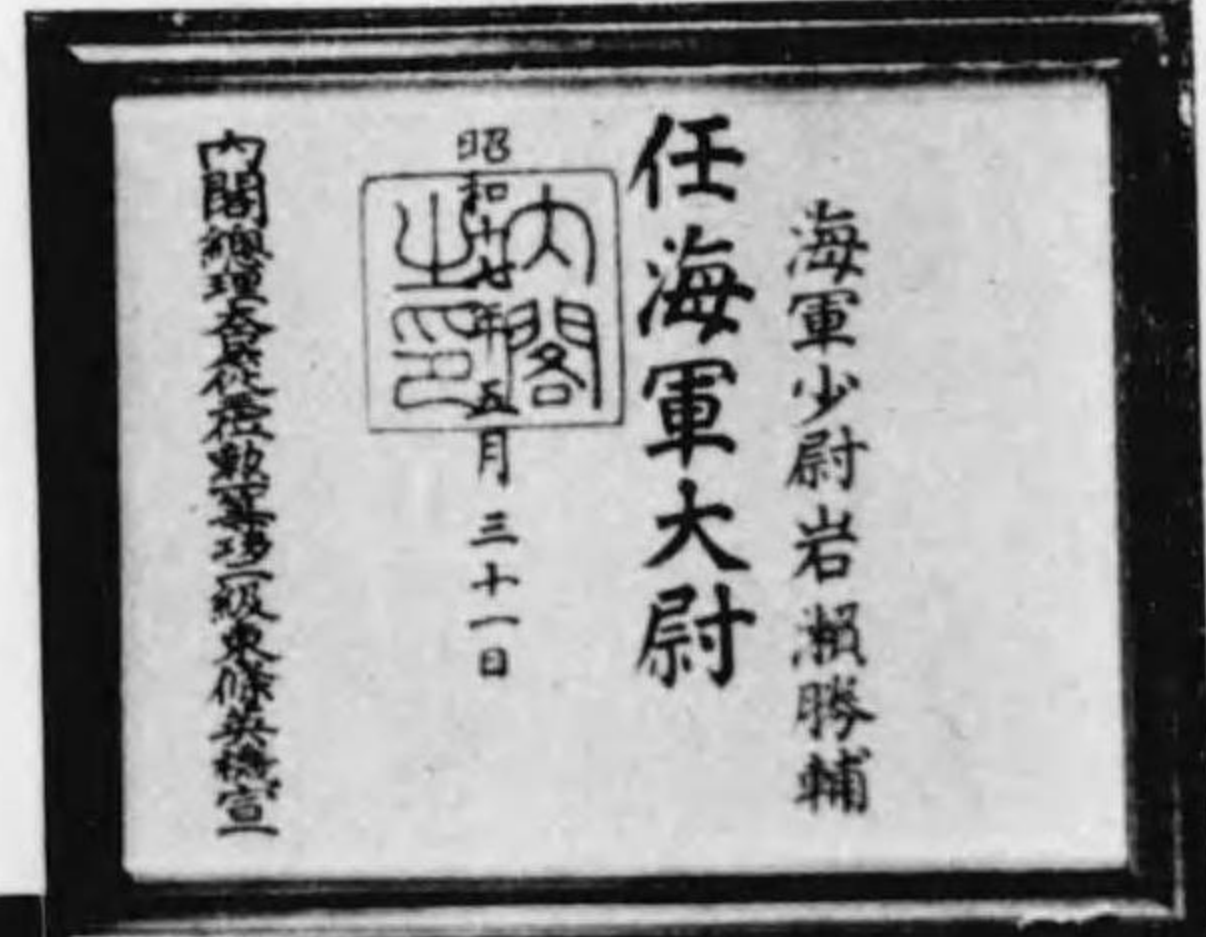 海軍少尉岩瀬勝輔
任海軍大尉
昭和十七年五月三十一日
内閣之印
内閣總理大臣從二位勲一等功二級東條英機宣